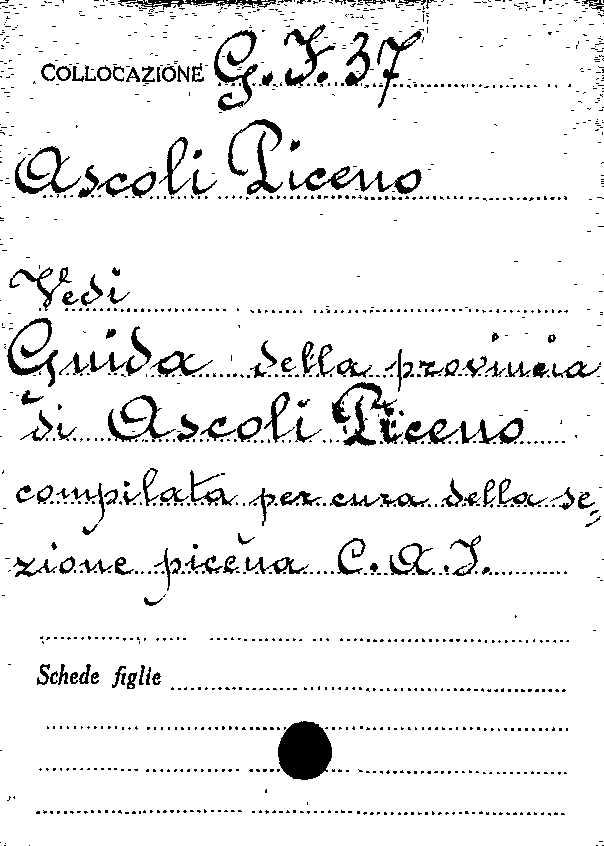 COLLOCAZIONE G. I. 37
Ascoli Piceno
Vedi
Guida della provincia
di Ascoli Piceno
compilata per cura della se=
zione picena C. A. I.
Schede figlie